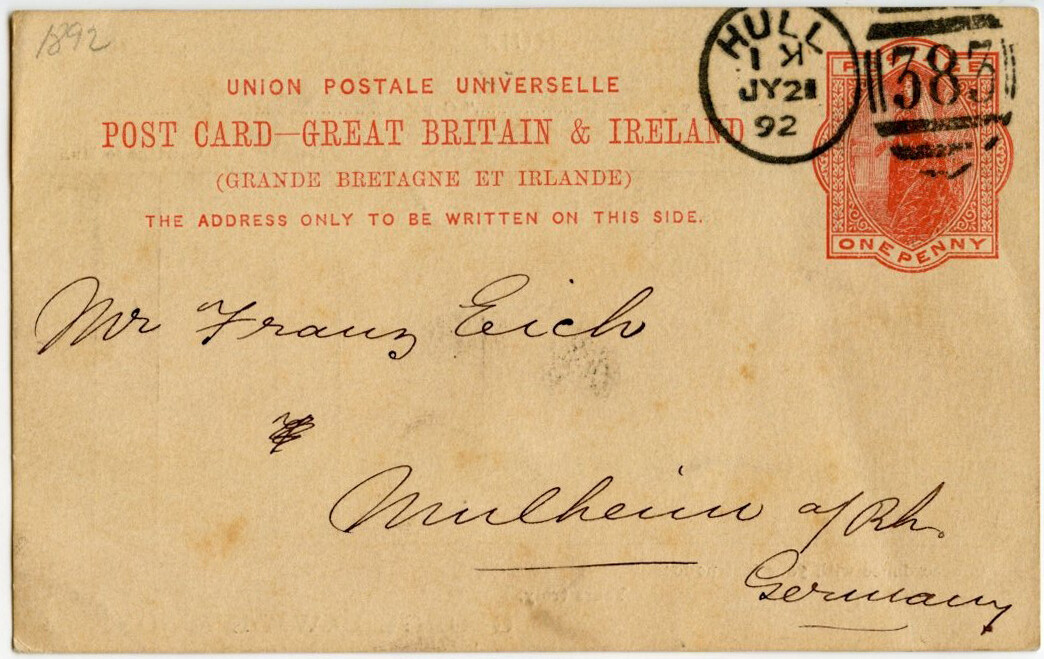 1892
UNION POSTALE UNIVERSELLE
POST CARD—GREAT BRITAIN & IRELAND
(GRANDE BRETAGNE ET IRLANDE)
THE ADDRESS ONLY TO BE WRITTEN ON THIS SIDE.
HULL
1 K
JY 21
92
383
ONE PENNY
Mr Franz Eich
Mulheim a/Rh.
Germany